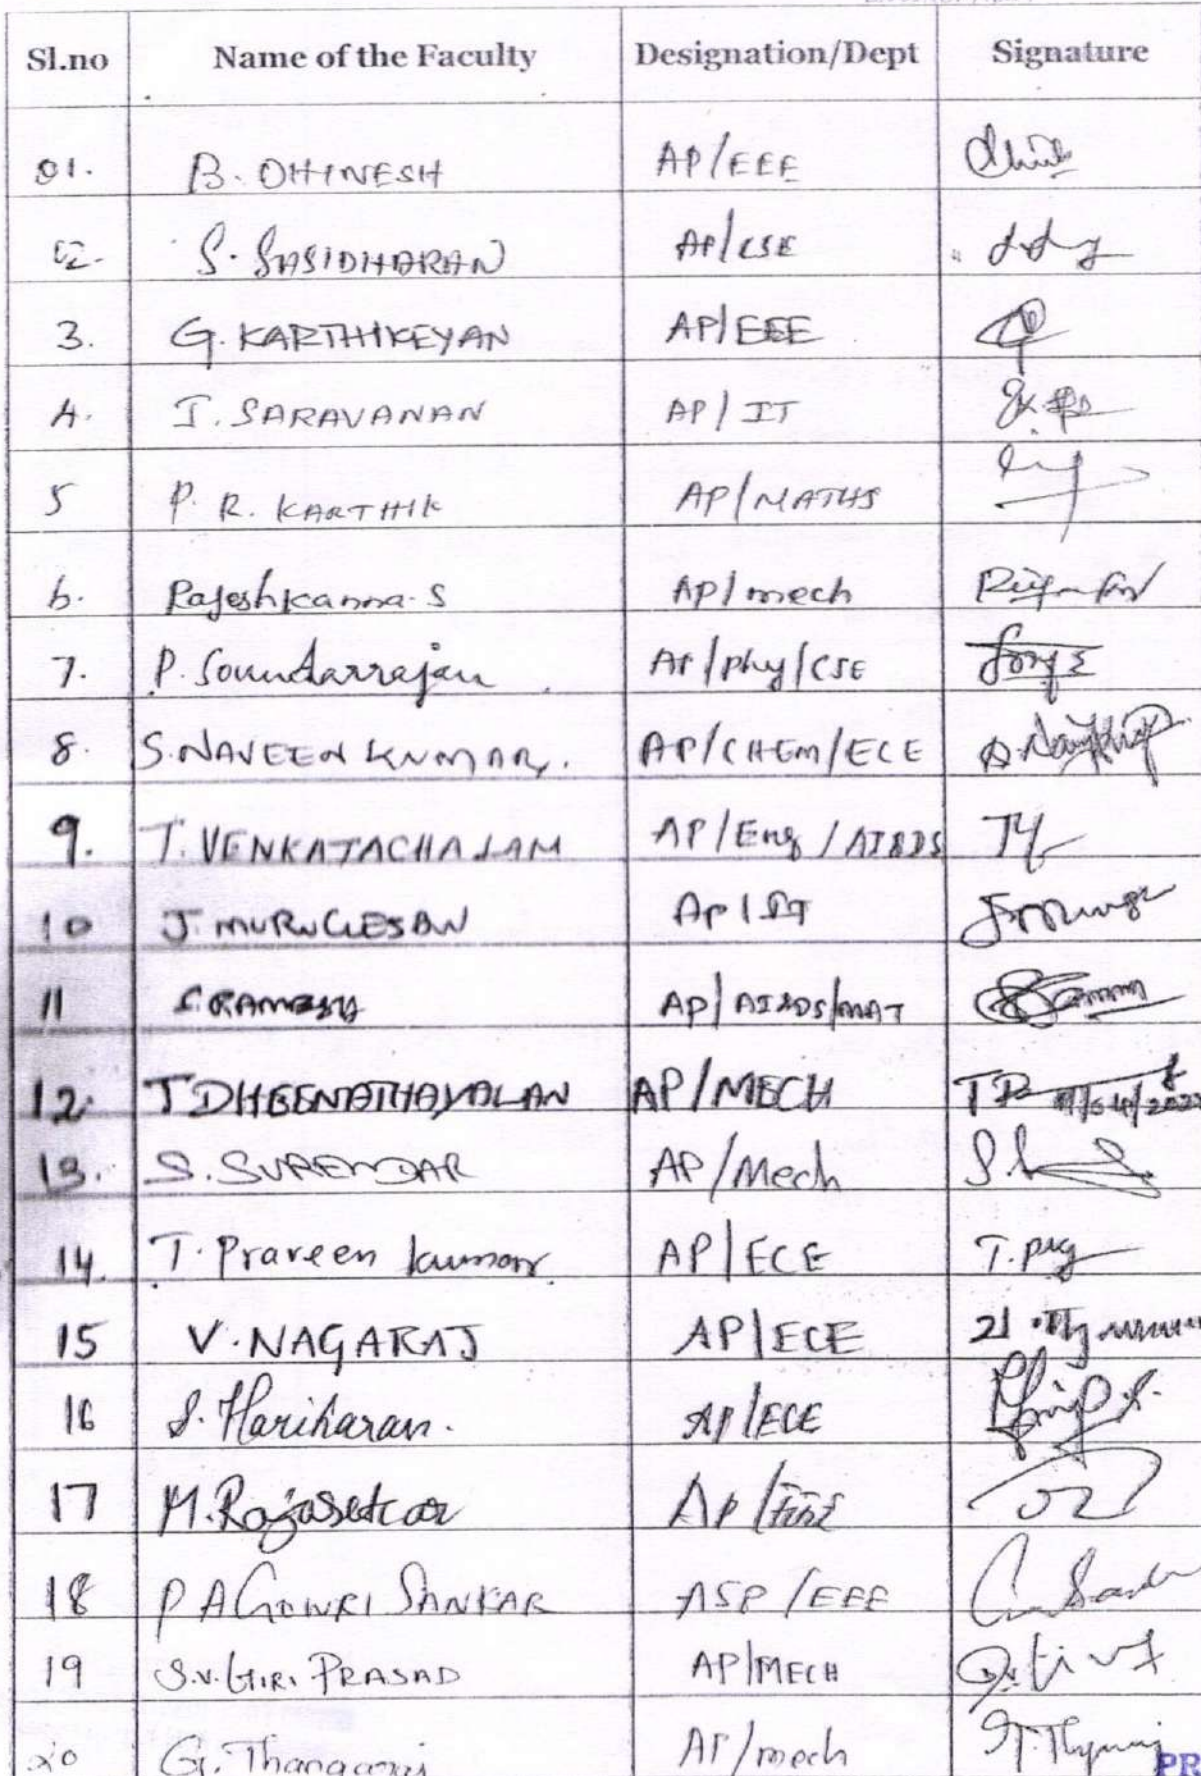 Sl.no Name of the Faculty Designation/Dept Signature
01. B. DHINESH AP/EEE
02. S. SASIDHARAN AP/CSE
3. G. KARTHIKEYAN AP/EEE
4. I. SARAVANAN AP/IT
5 P. R. KARTHIK AP/MATHS
6. Rajeshkanna.S AP/mech
7. P. Soundarrajan AP/phy/CSE
8. S.NAVEEN KUMAR. AP/CHEM/ECE
9. T. VENKATACHALAM AP/Eng/AI&DS
10 J. MURUGESAN AP/IT
11 AP/AI&DS/MAT
12. T DHEENATHAYALAN AP/MECH
13. S. SURENDAR AP/Mech
14. T. Praveen kumar. AP/ECE T.
15 V. NAGARAJ AP/ECE
16 S. Hariharan. AP/ECE
17 M. Rajasekar AP/
18 P A GOWRI SANKAR ASP/EEE
19 S.V. GIRI PRASAD AP/MECH
20 G. Thangaraj AP/mech
PR